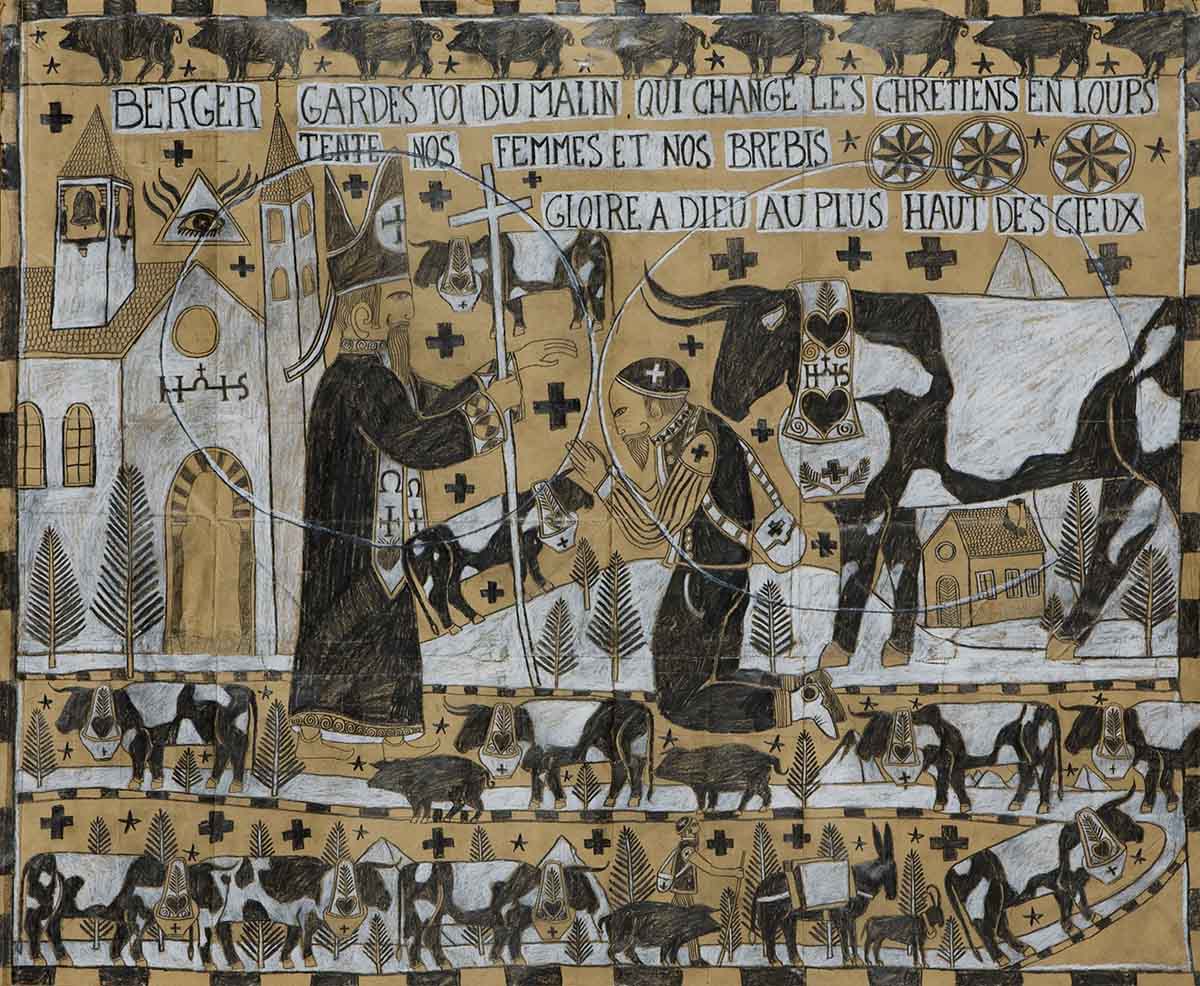 BERGER GARDES TOI DU MALIN QUI CHANGE LES CHRETIENS EN LOUPS
TENTE NOS FEMMES ET NOS BREBIS
GLOIRE A DIEU AU PLUS HAUT DES CIEUX
IHS
IHS